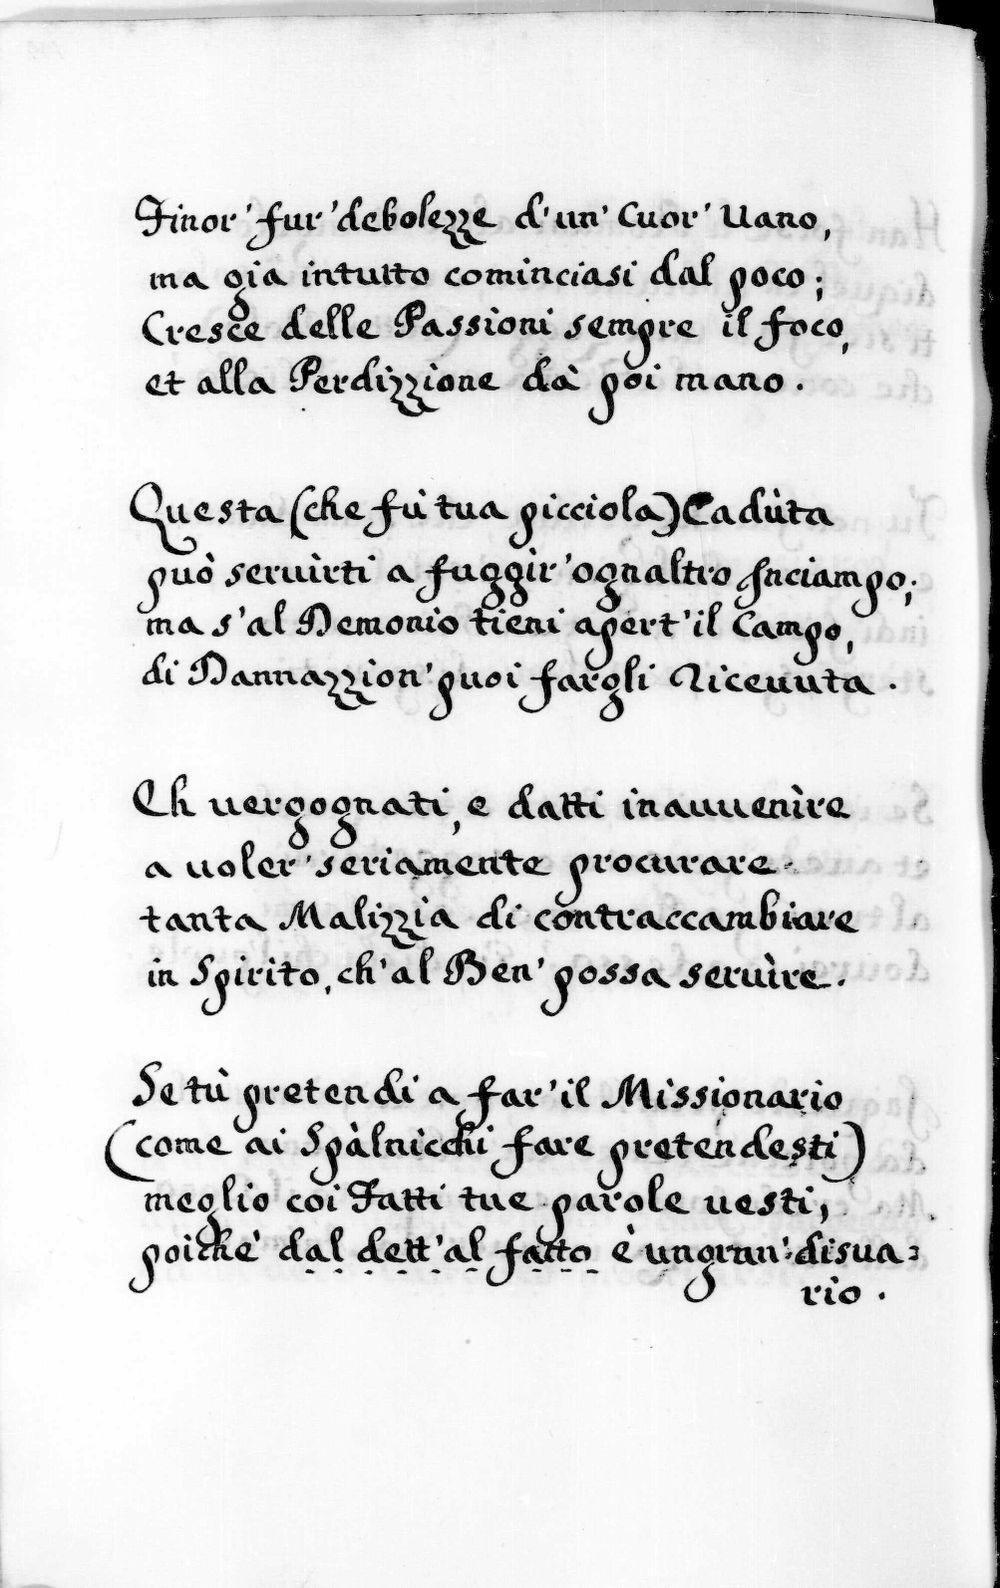 Finor' fur' debolezze d'un' Cuor' Uano,
ma già intutto cominciasi dal poco;
Cresce delle Passioni sempre il foco,
et alla Perdizzione dà poi mano.
Questa (che fù tua picciola) Cadùta
può seruìrti a fuggìr' ognaltro Inciampo;
ma s'al Demonio tieni apert' il Campo,
di Dannazzion' puoi fargli Riceuuta.
Eh uergognati, e datti inauuenìre
a uoler' seriamente procurare
tanta Malizzia di contraccambiare
in Spirito, ch'al Ben' possa seruìre.
Se tù pretendi a far' il Missionario
(come ai Spàlnicchi fare pretendesti)
meglio coi Fatti tue parole uesti,
poichè dal dett' al fatto è ungran' disua=
rio.